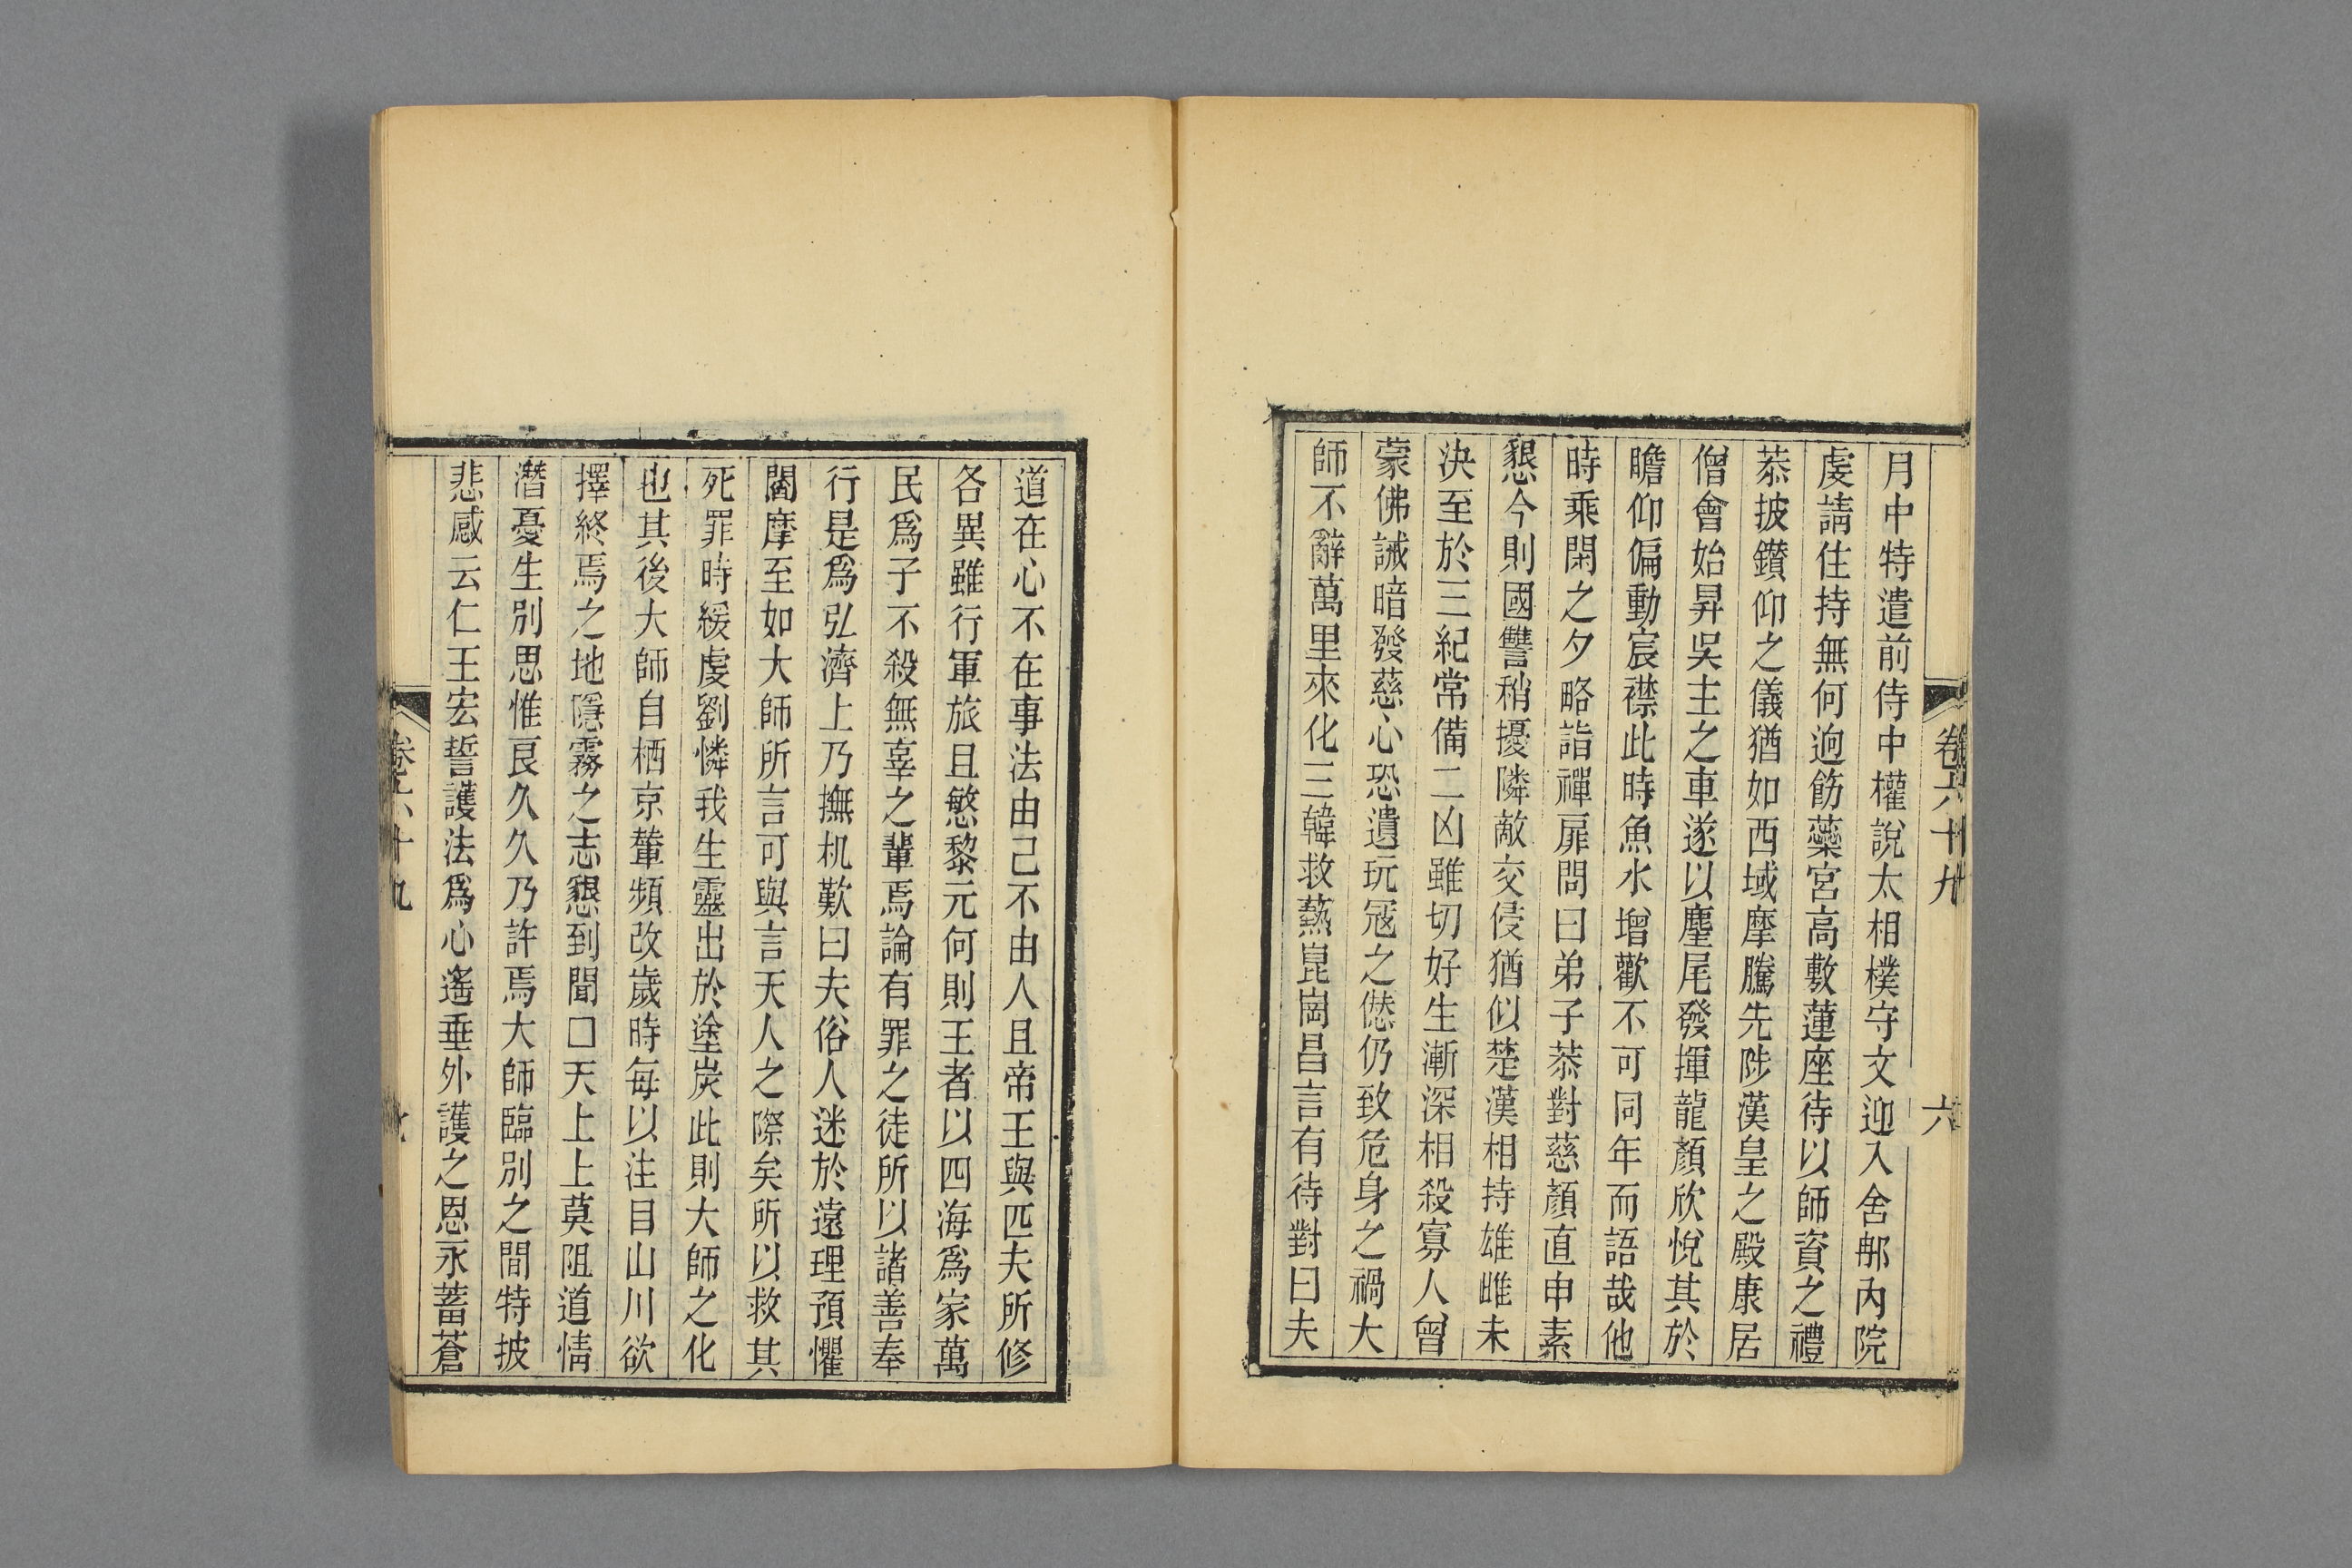 卷六十九
六
月中特遣前侍中權說太相樸守文迎入舍那內院
虔請住持無何逈飾蘂宮高敷蓮座待以師資之禮
恭披鑽仰之儀猶如西域摩騰先陟漢皇之殿康居
僧會始昇吳主之車遂以麈尾發揮龍顏欣悅其於
瞻仰偏動宸襟此時魚水增歡不可同年而語哉他
時乘閑之夕略詣禪扉問曰弟子恭對慈顏直申素
懇今則國讐稍擾隣敵交侵猶似楚漢相持雄雌未
決至於三紀常備二凶雖切好生漸深相殺寡人曾
蒙佛誡暗發慈心恐遺玩冦之僽仍致危身之禍大
師不辭萬里來化三韓救爇崑崗昌言有待對曰夫
道在心不在事法由己不由人且帝王與匹夫所修
各異雖行軍旅且慜黎元何則王者以四海爲家萬
民爲子不殺無辜之輩焉論有罪之徒所以諸善奉
行是爲弘濟上乃撫机歎曰夫俗人迷於遠理預懼
閻摩至如大師所言可與言天人之際矣所以救其
死罪時緩虔劉憐我生靈出於塗炭此則大師之化
也其後大師自栖京輦頻改歲時每以注目山川欲
擇終焉之地隱霧之志懇到聞□天上上莫阻道情
潛憂生別思惟良久久乃許焉大師臨別之間特披
悲感云仁王宏誓護法爲心遙垂外護之恩永蓄蒼
卷六十九
七